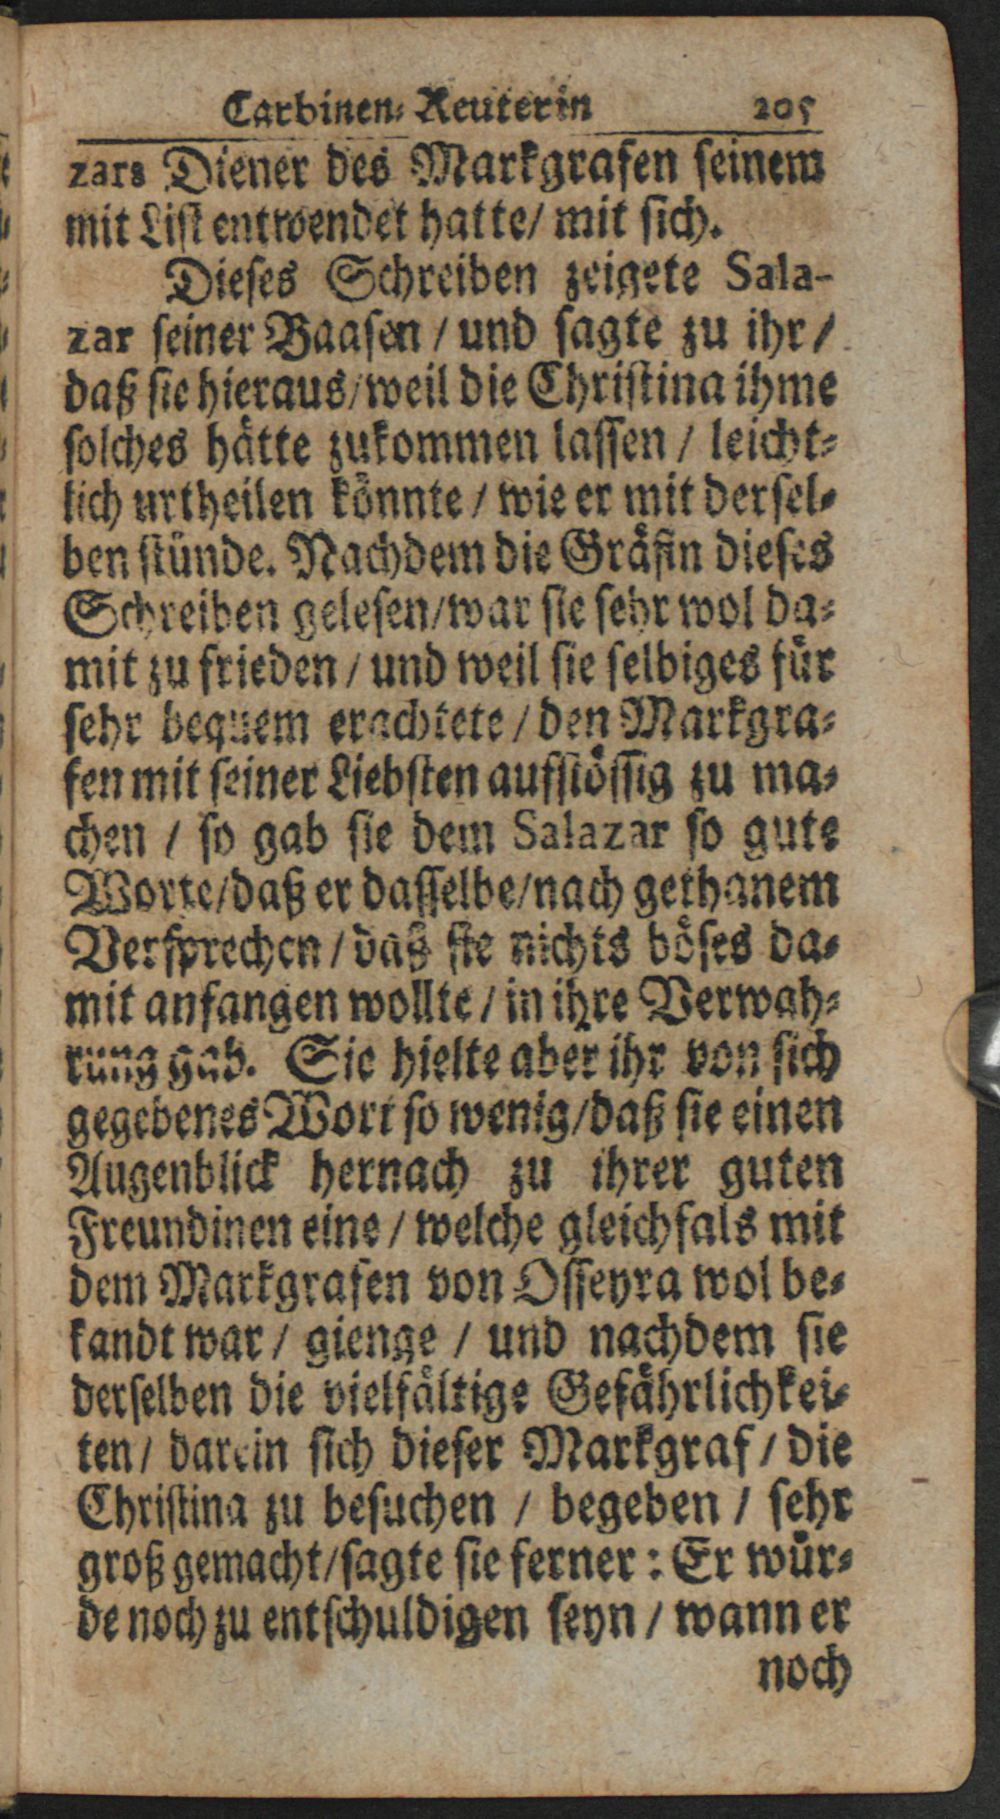 Carbinen-Reuterin 205
zars Diener des Markgrafen seinem
mit List entwendet hatte/ mit sich.
Dieses Schreiben zeigete Sala-
zar seiner Baasen / und sagte zu ihr /
daß sie hieraus/ weil die Christina ihme
solches hätte zukommen lassen / leicht-
lich urtheilen könnte / wie er mit dersel-
ben stünde. Nachdem die Gräfin dieses
Schreiben gelesen/war sie sehr wol da-
mit zu frieden / und weil sie selbiges für
sehr bequem erachtete / den Markgra-
fen mit seiner Liebsten aufstössig zu ma-
chen / so gab sie dem Salazar so gute
Worte/daß er dasselbe/nach gethanem
Versprechen / daß sie nichts böses da-
mit anfangen wollte / in ihre Verwah-
rung gab. Sie hielte aber ihr von sich
gegebenes Wort so wenig/daß sie einen
Augenblick hernach zu ihrer guten
Freundinen eine / welche gleichfals mit
dem Markgrafen von Osseyra wol be-
kandt war / gienge / und nachdem sie
derselben die vielfältige Gefährlichkei-
ten / darein sich dieser Markgraf / die
Christina zu besuchen / begeben / sehr
groß gemacht/sagte sie ferner: Er wür-
de noch zu entschuldigen seyn / wann er
noch